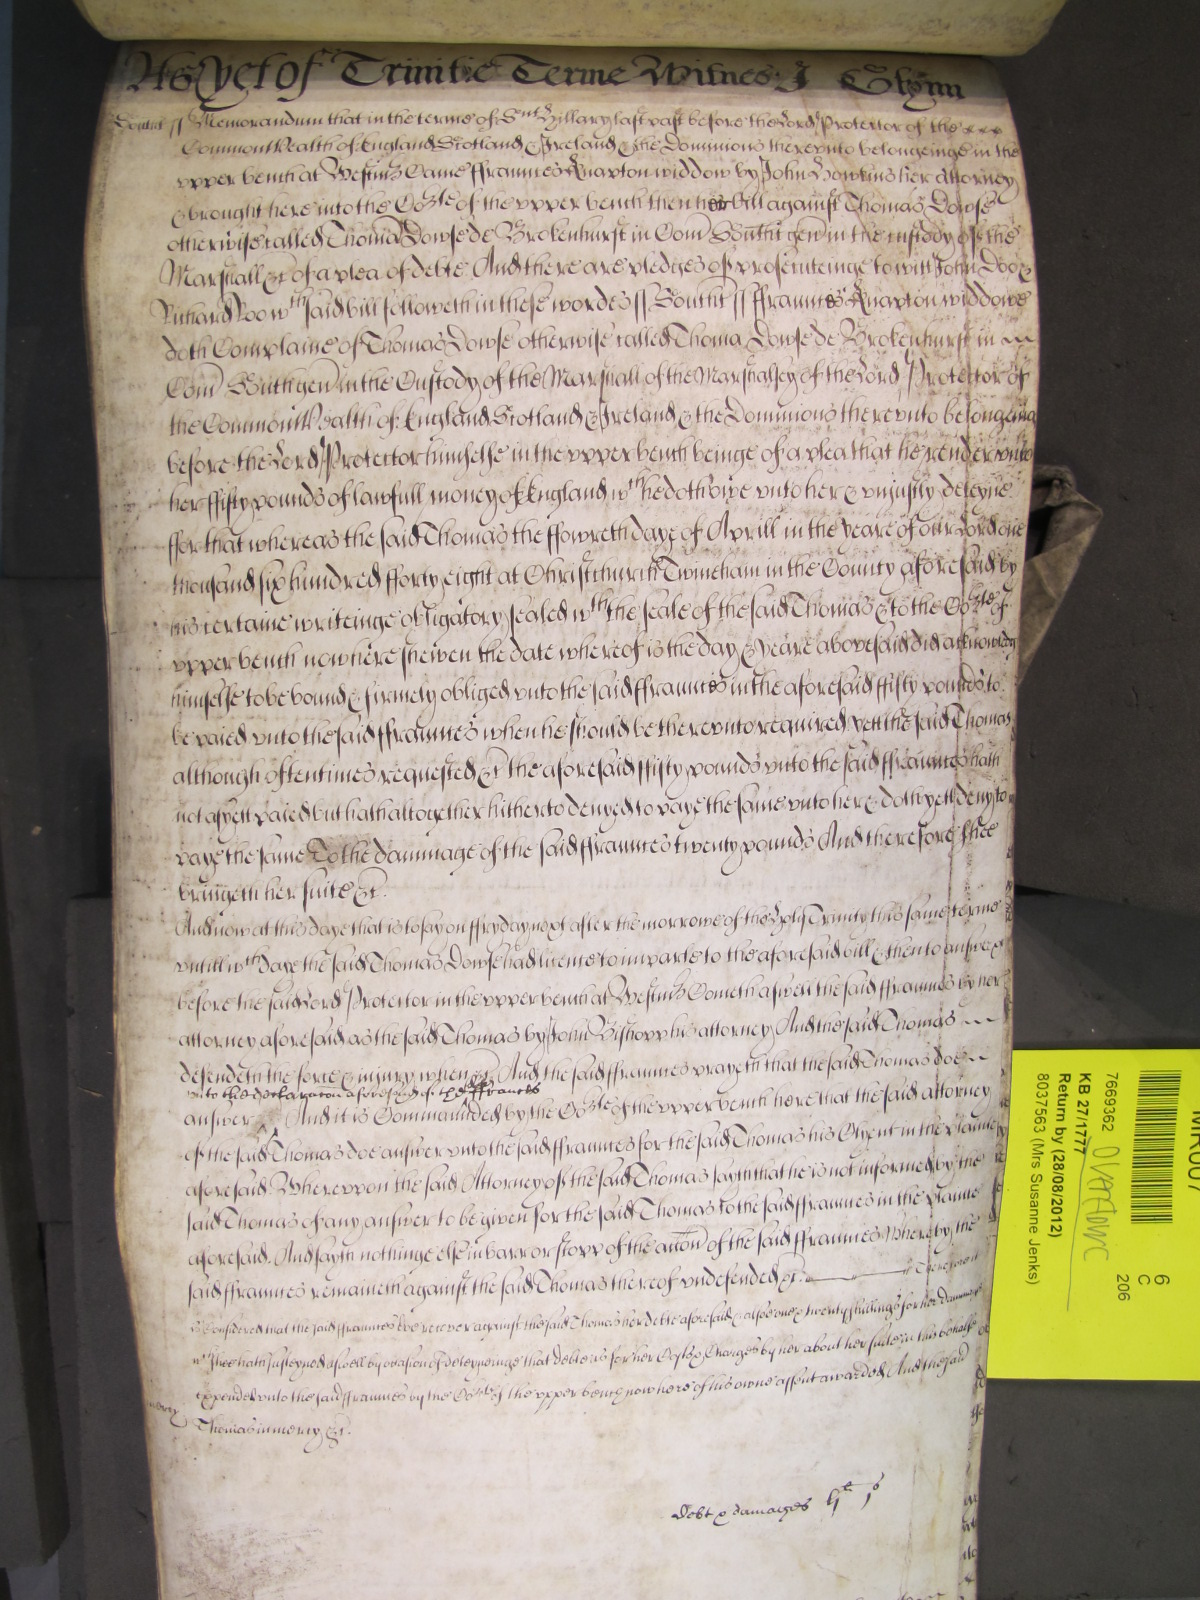 As yet of Trinitie Terme Witnes J Glynn
Southt // Memorandum that in the terme of Snt Hillary last past before the Lord Protector of the
Common Wealth of England Scotland & Ireland & the Dominions thereunto belongeinge in the
upper bench at Westmr Came ffraunces Knapton widdow by John Howkins her attorney
& brought here into the Cort of the upper bench then her bill against Thomas Dowse
otherwise called Thoma Dowse de Brokenhurst in Com Southt gen in the custody of the
Marshall &c of a plea of debte And there are pledges of prosecuteinge to witt John Doo &
Richard Roo wch said bill followeth in these wordes // Southt // ffraunces Knapton widdowe
doth Complaine of Thomas Dowse otherwise called Thoma Dowse de Brokenhurst in
Com Suth gen in the Custody of the Marshall of the Marshalsey of the Lord Protector of
the Common Wealth of England Scotland & Ireland & the Dominions thereunto belongeing
before the Lord Protector himselfe in the upper bench beinge of a plea that he render unto
her ffifty pounds of lawfull money of England wch he doth owe unto her & unjustly deteyne
ffor that whereas the said Thomas the ffowreth daye of Aprill in the yeare of our Lord one
thousand six hundred fforty eight at Christchurch Twineham in the County aforesaid by
his certaine writeinge obligatory sealed wth the seale of the said Thomas & to the Cort of
upper bench now here shewen the date whereof is the day & yeare abovesaid did acknowledg
himselfe to be bound & firmely obliged unto the said ffraunces in the aforesaid ffifty pounds to
be paied unto the said ffraunces when he should be thereunto required yett the said Thomas
although oftentimes requested &c the aforesaid ffifty pounds unto the said ffraunces hath
not as yett paied but hath altogether hitherto denyed to paye the same unto her & doth yett deny to
paye the same To the dammage of the said ffraunces twenty pounds And therefore shee
bringeth her suite &c.
And now at this daye that is to say on ffryday next after the morrowe of the holy Trinity this same terme
untill wch daye the said Thomas Dowse had licence to imparle to the aforesaid bill & then to answer
before the said Lord Protector in the upper bench at Westmr Cometh aswell the said ffraunces by her
attorney aforesaid as the said Thomas by John Bishopp his attorney And the said Thomas
defendeth the force & injury when &c And the said ffraunces prayeth that the said Thomas doe
unto the declaracon aforesaid of the sd ffrances
answer And it is Commaunded by the Cort of the upper bench here that the said attorney
of the said Thomas doe answer unto the said ffraunces for the said Thomas his Clyent in the plaint
aforesaid Whereupon the said Attorney of the said Thomas sayth that he is not informed by the
said Thomas of any answer to be given for the said Thomas to the said ffraunces in the plainte
aforesaid. And sayth nothinge else in barr or stopp of the accon of the said ffraunces Whereby the
said ffraunces remaineth against the said Thomas thereof undefended &c. Therefore it
is Considered that the said ffraunces doe recover against the said Thomas her debte aforesaid & alsoe one & twenty shillings for her dammages
wch shee hath susteyned aswell by occasion of deteyneinge that debte as for her Costs & Charges by her about her suite in this behalfe
expended unto the said ffraunces by the Cort of the upper bench now here of his owne assent awarded And the said
mercy
Thomas in mercy &c.
Debt & damages
MR007
6
C
206
7669362
OVERFLOWC
KB 27/1777
Return by (28/08/2012)
8037563 (Mrs Susanne Jenks)